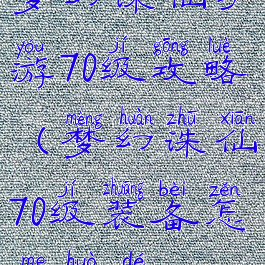 yóu jí gōng lüè
游70级攻略
mèng huàn zhū xiān
(梦幻诛仙
jí zhuāng bèi zěn
70级装备怎
me huò dé